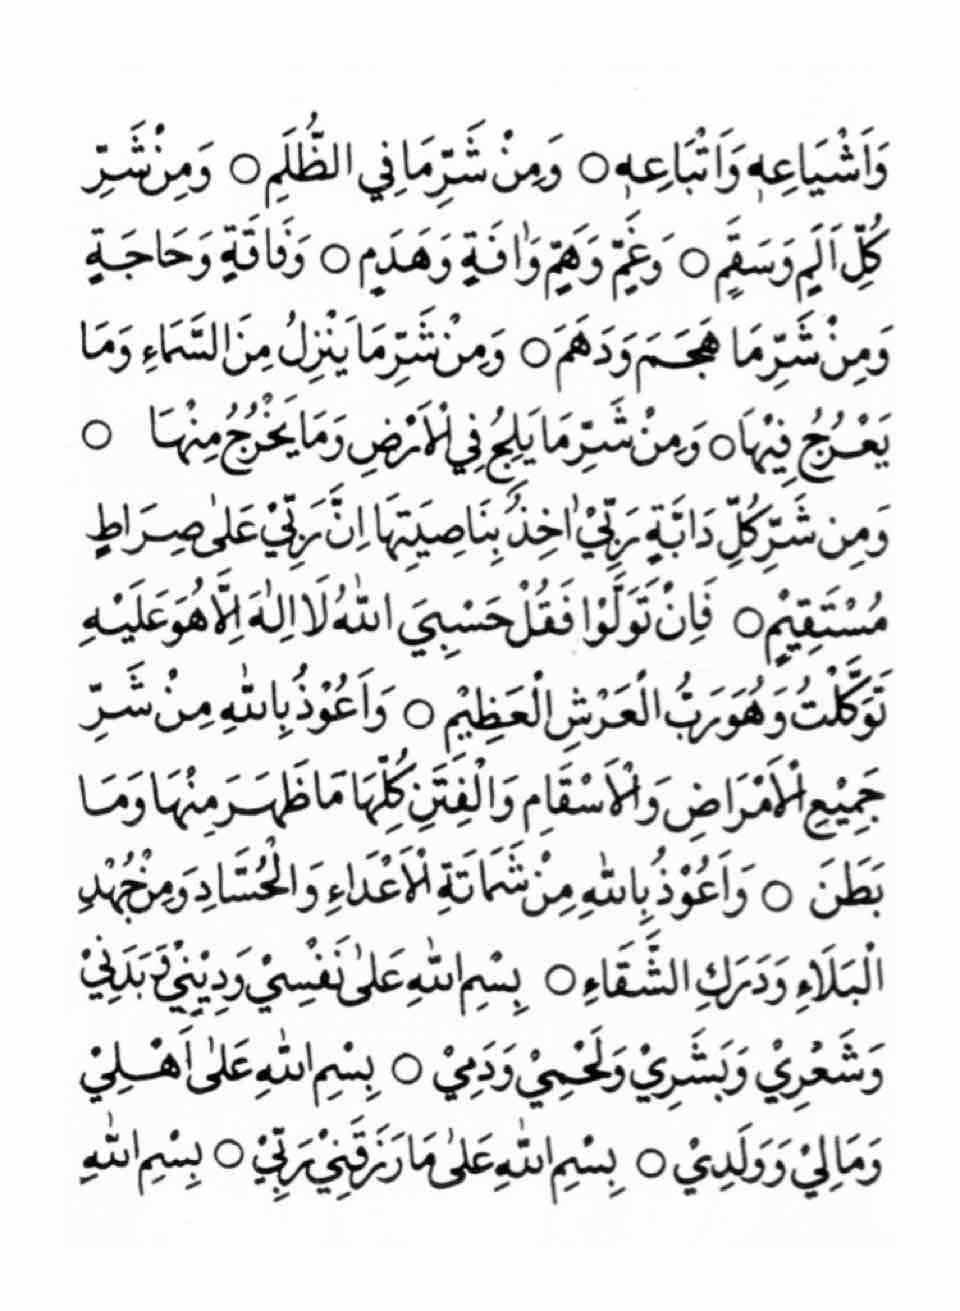 وَاَشْيَاعِهٖ وَاَتْبَاعِهٖ ○ وَمِنْ شَرِّ مَا فِي الظُّلَمِ ○ وَمِنْ شَرِّ
كُلِّ اَلَمٍ وَسَقَمٍ ○ وَغَمٍّ وَهَمٍّ وَاٰفَةٍ وَهَدَمٍ ○ وَفَاقَةٍ وَحَاجَةٍ
وَمِنْ شَرِّ مَا هَجَمَ وَدَهَمَ ○ وَمِنْ شَرِّ مَا يَنْزِلُ مِنَ السَّمَاءِ وَمَا
يَعْرُجُ فِيْهَا ○ وَمِنْ شَرِّ مَا يَلِجُ فِي الْاَرْضِ وَمَا يَخْرُجُ مِنْهَا ○
وَمِن شَرِّ كُلِّ دَابَّةٍ رَبِّيْ اٰخِذٌ بِنَاصِيَتِهَا اِنَّ رَبِّيْ عَلٰى صِرَاطٍ
مُسْتَقِيْمٍ ○ فَاِنْ تَوَلَّوْا فَقُلْ حَسْبِيَ اللّٰهُ لَا اِلٰهَ اِلَّا هُوَ عَلَيْهِ
تَوَكَّلْتُ وَهُوَ رَبُّ الْعَرْشِ الْعَظِيْمِ ○ وَاَعُوْذُ بِاللّٰهِ مِنْ شَرِّ
جَمِيْعِ الْاَمْرَاضِ وَالْاَسْقَامِ وَالْفِتَنِ كُلِّهَا مَا ظَهَرَ مِنْهَا وَمَا
بَطَنَ ○ وَاَعُوْذُ بِاللّٰهِ مِنْ شَمَاتَةِ الْاَعْدَاءِ وَالْحُسَّادِ وَمِنْ جُهْدِ
الْبَلَاءِ وَدَرَكِ الشَّقَاءِ ○ بِسْمِ اللّٰهِ عَلٰى نَفْسِيْ وَدِيْنِيْ وَبَدَنِيْ
وَشَعْرِيْ وَبَشَرِيْ وَلَحْمِيْ وَدَمِيْ ○ بِسْمِ اللّٰهِ عَلٰى اَهْلِيْ
وَمَالِيْ وَوَلَدِيْ ○ بِسْمِ اللّٰهِ عَلٰى مَا رَزَقَنِيْ رَبِّيْ ○ بِسْمِ اللّٰهِ